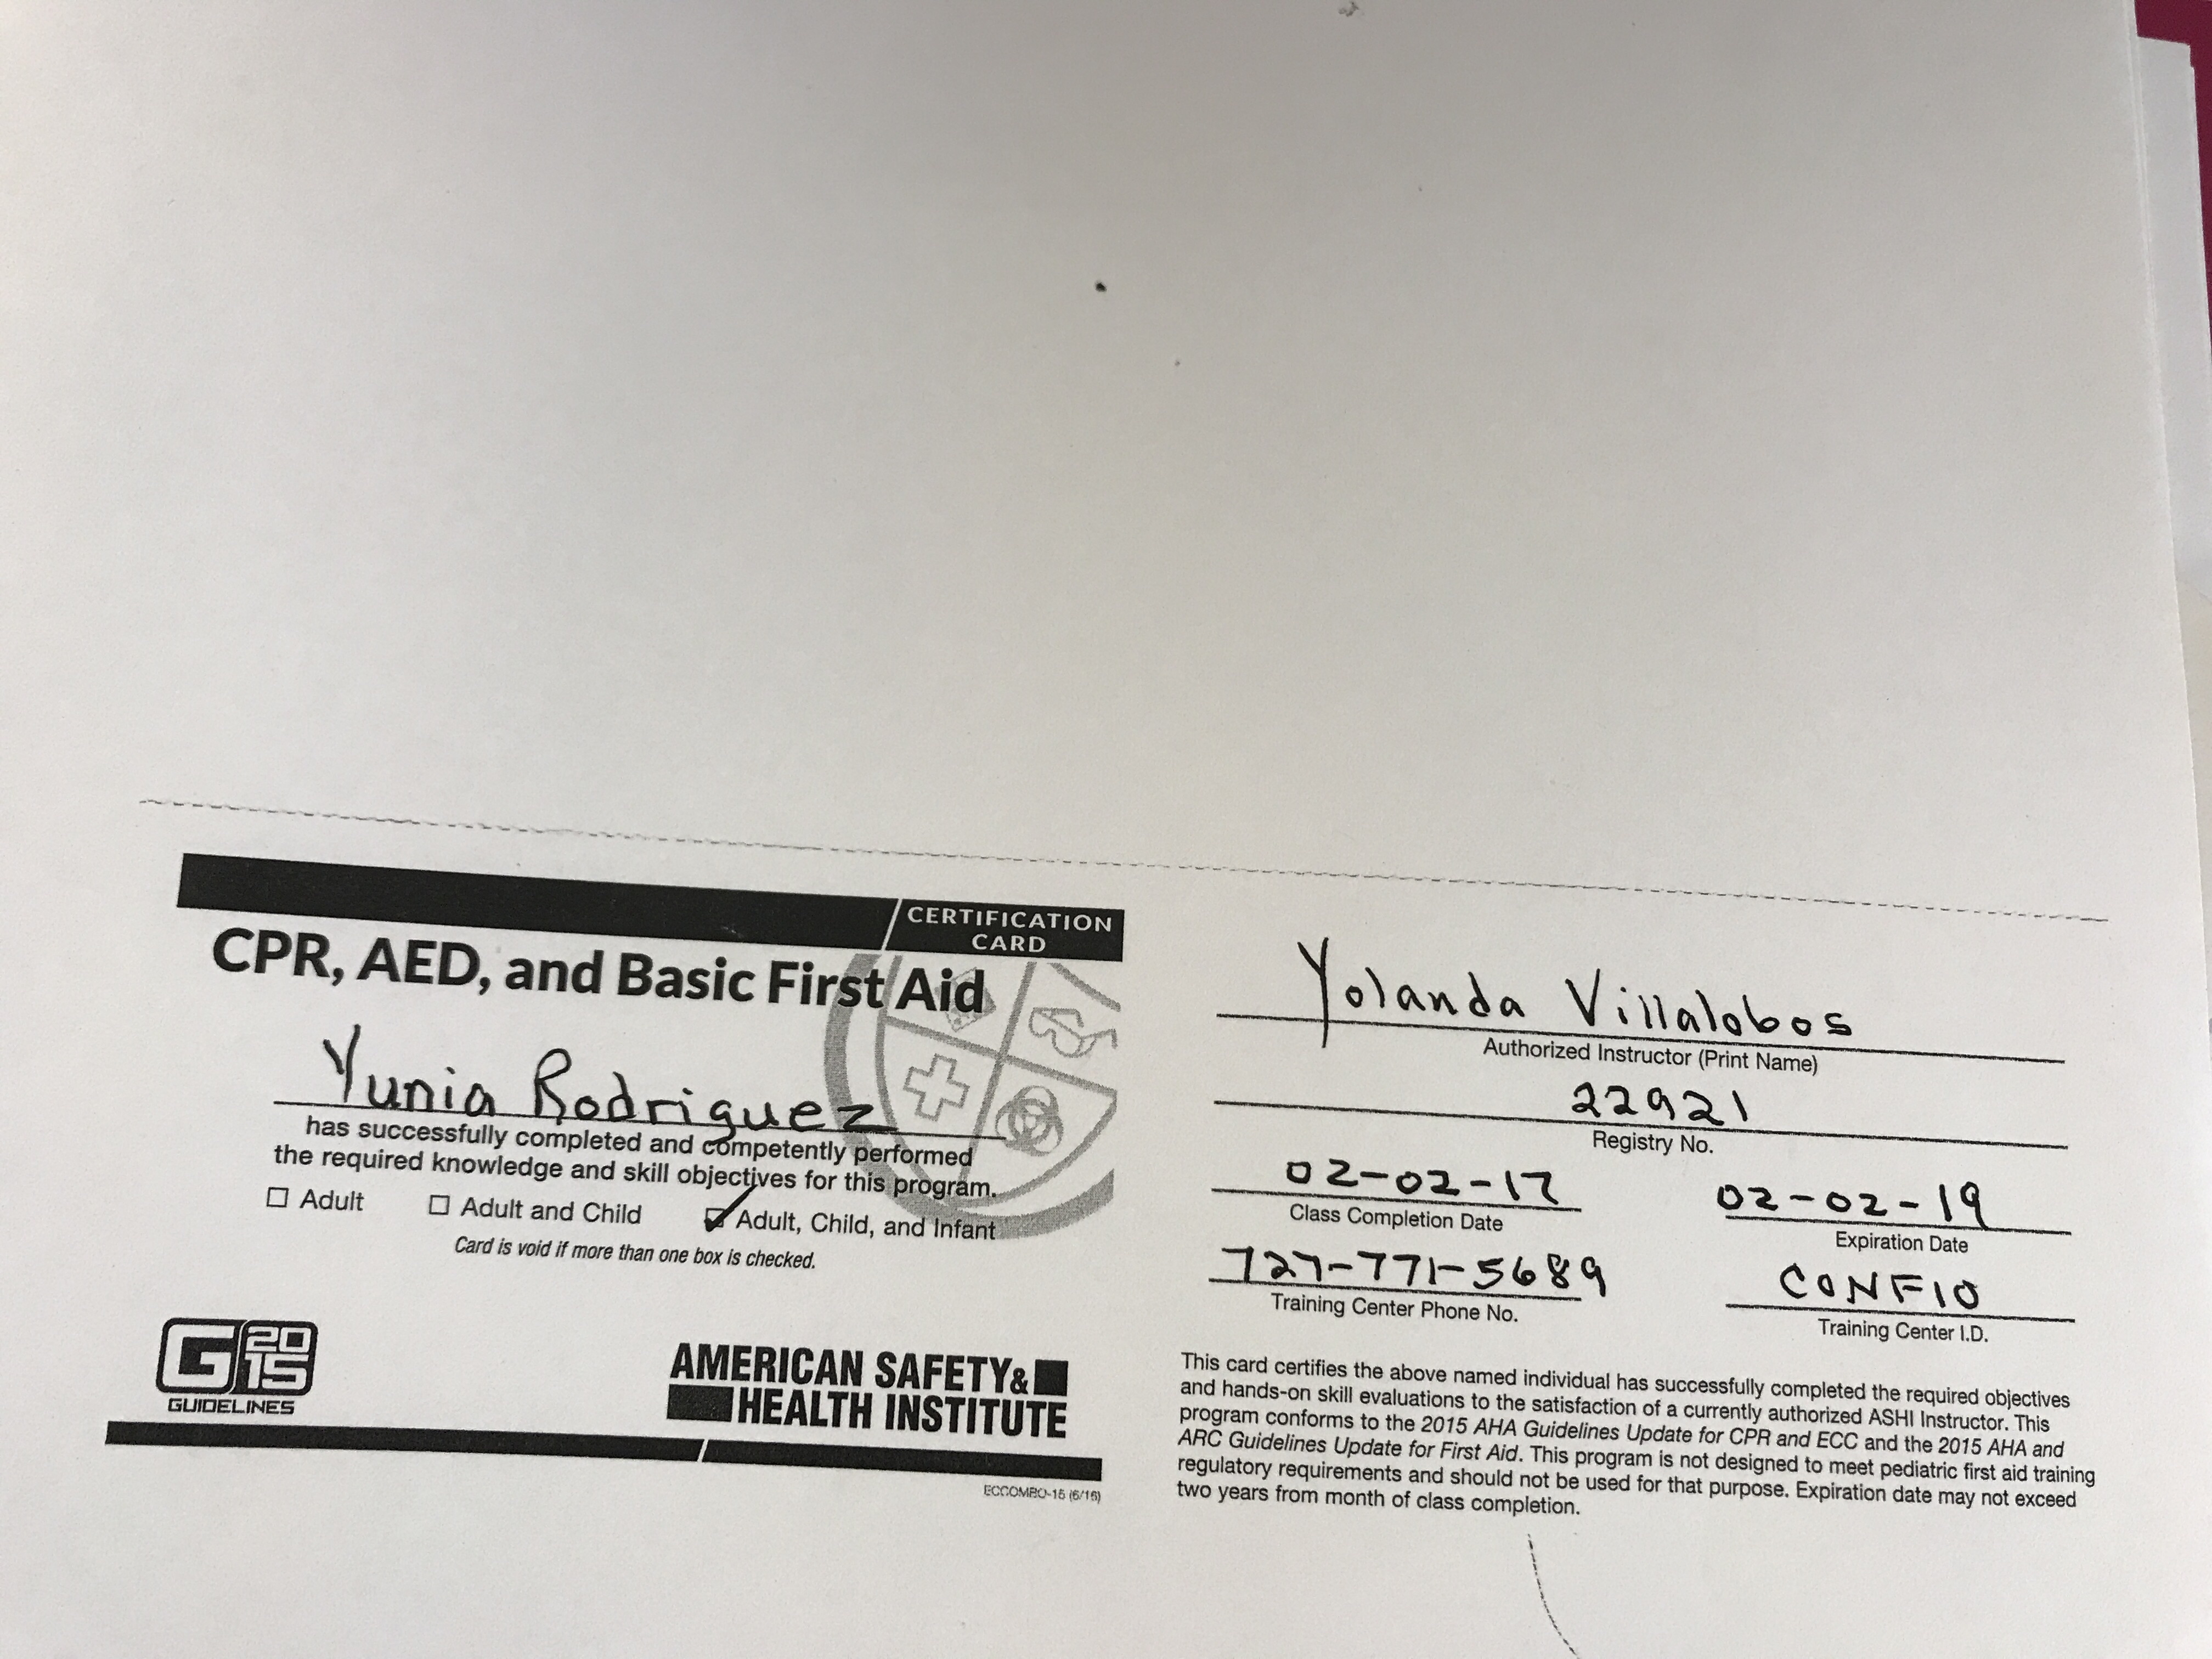 CERTIFICATION
CARD
CPR, AED, and Basic First Aid
Yunia Rodriguez
has successfully completed and competently performed
the required knowledge and skill objectives for this program.
☐ Adult ☐ Adult and Child ☑ Adult, Child, and Infant
Card is void if more than one box is checked.
G2015
GUIDELINES
AMERICAN SAFETY&
HEALTH INSTITUTE
Yolanda Villalobos
Authorized Instructor (Print Name)
22921
Registry No.
02-02-17 02-02-19
Class Completion Date Expiration Date
727-771-5689 CONF10
Training Center Phone No. Training Center I.D.
This card certifies the above named individual has successfully completed the required objectives
and hands-on skill evaluations to the satisfaction of a currently authorized ASHI Instructor. This
program conforms to the 2015 AHA Guidelines Update for CPR and ECC and the 2015 AHA and
ARC Guidelines Update for First Aid. This program is not designed to meet pediatric first aid training
regulatory requirements and should not be used for that purpose. Expiration date may not exceed
two years from month of class completion.